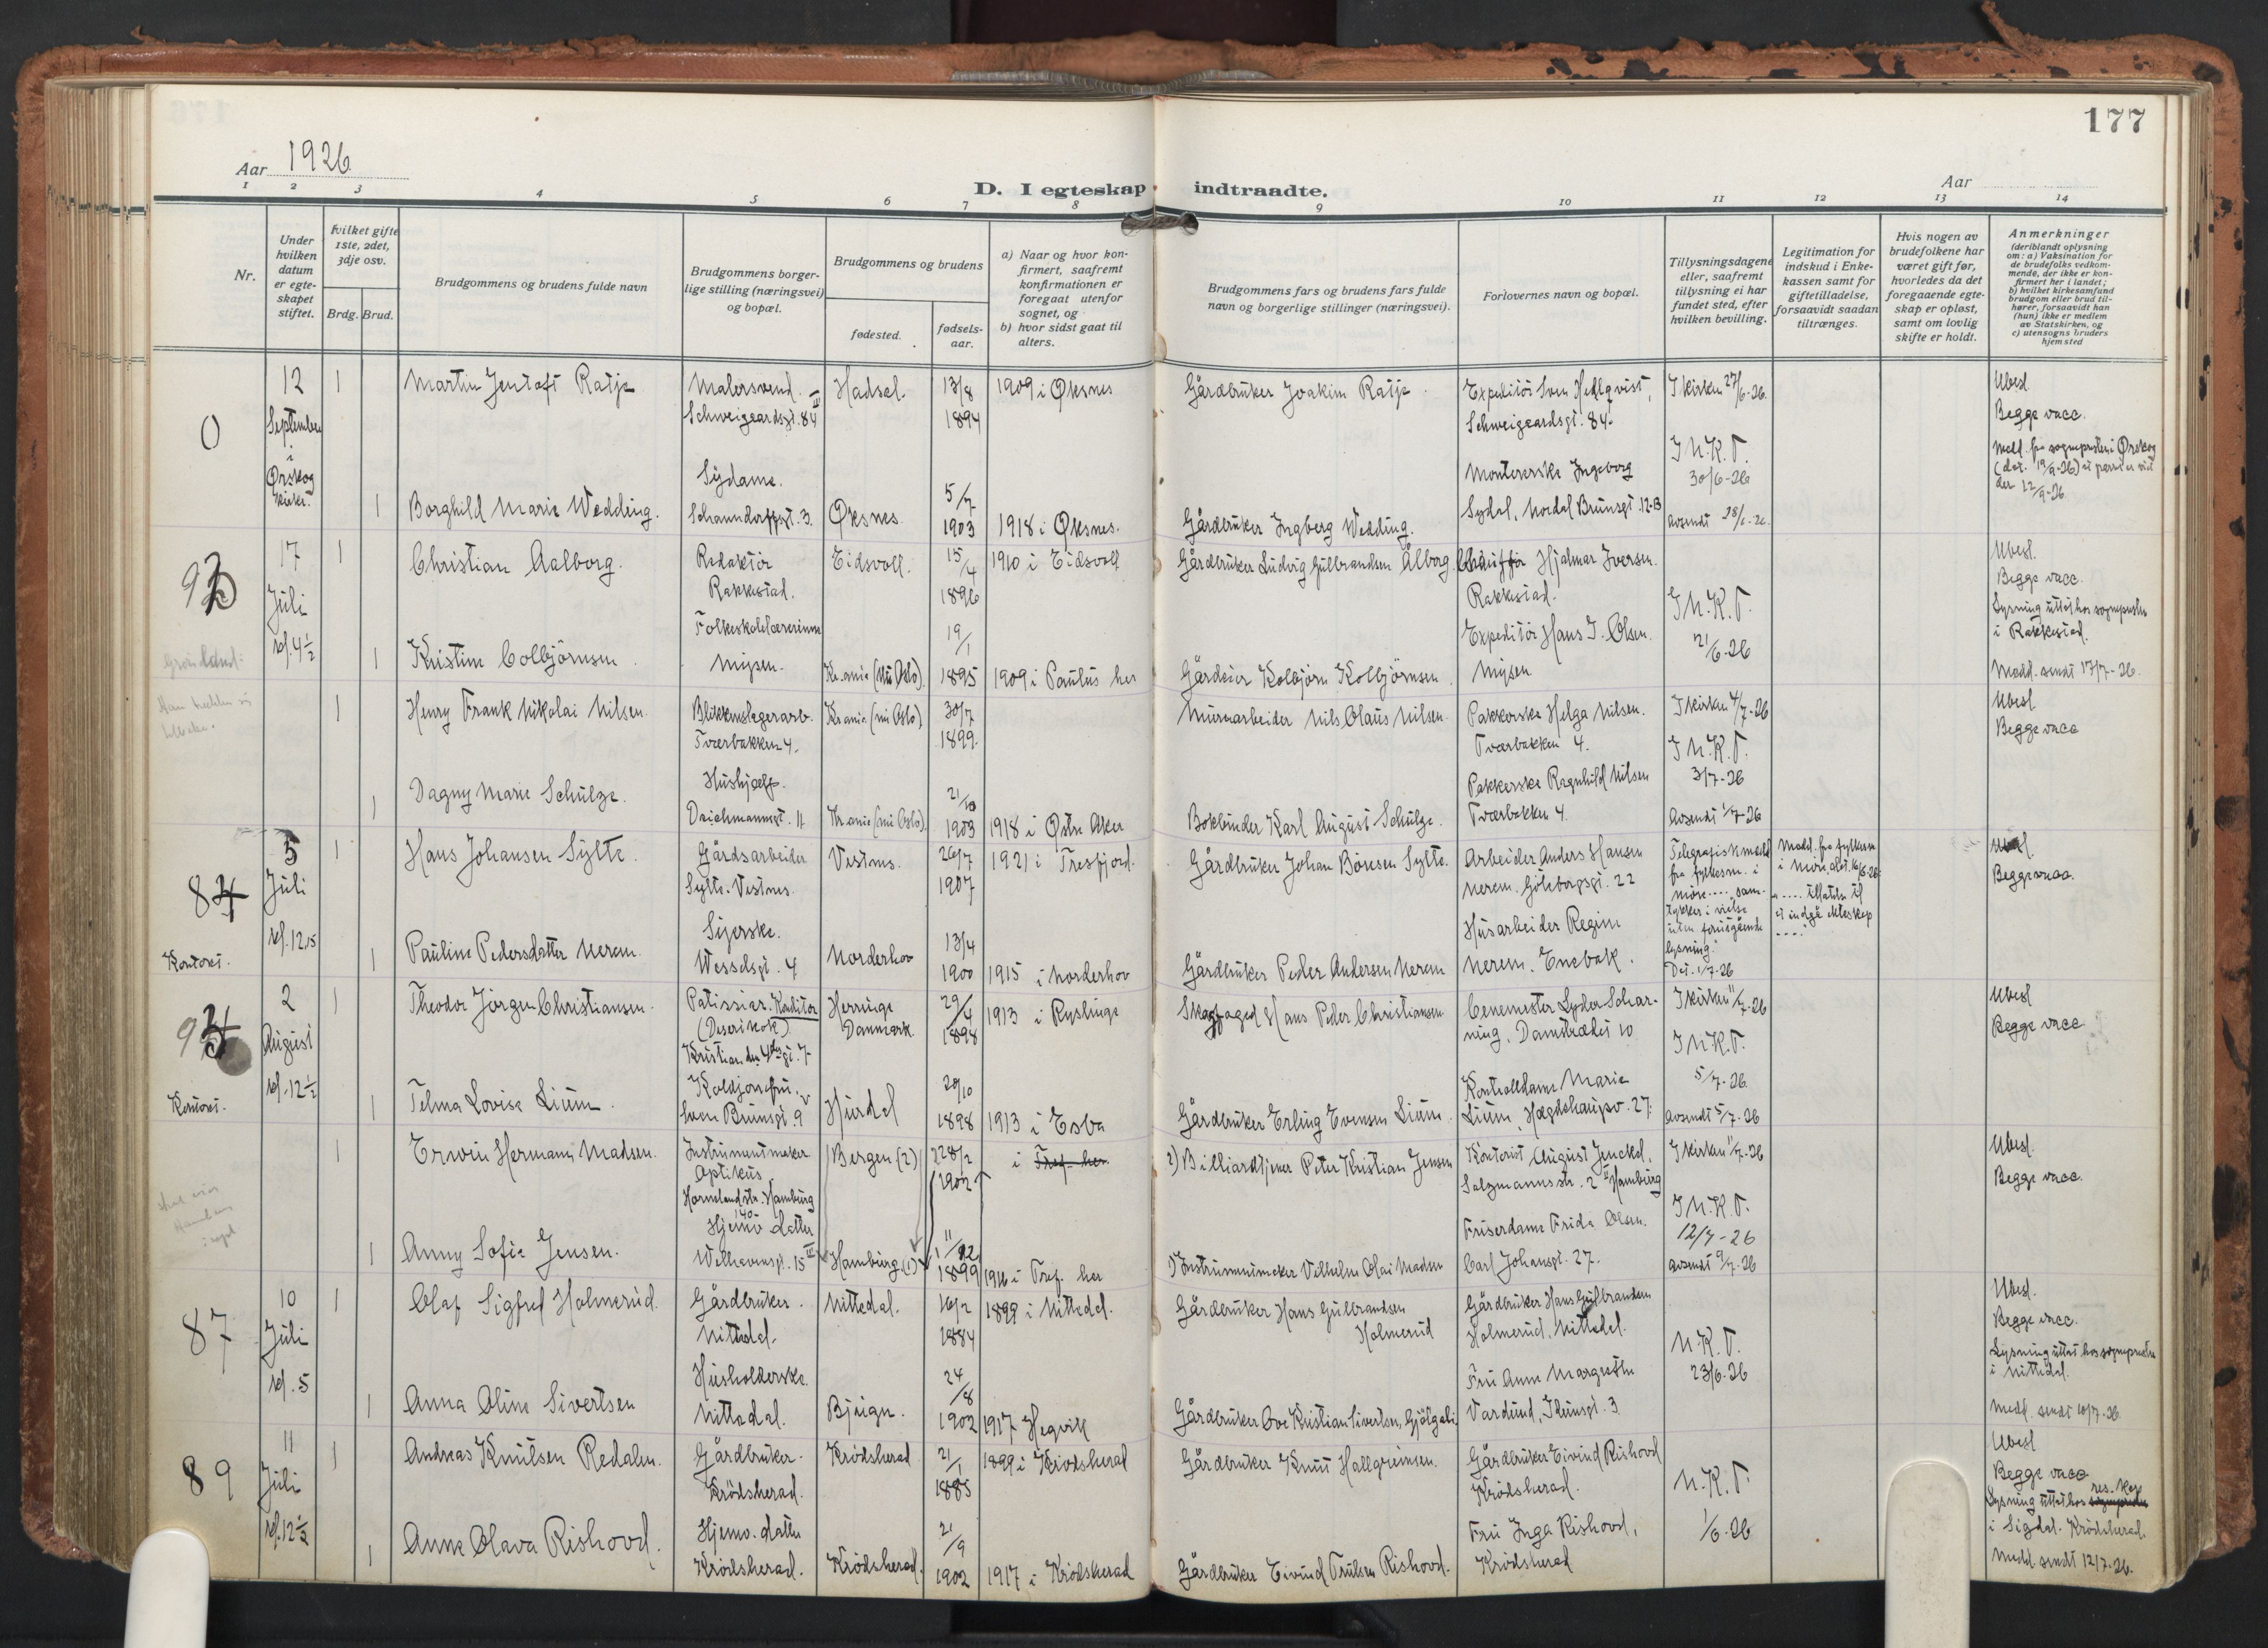 177
Aar 1926
Aar
D. I egteskap indtraadte.
1 2 3 4 5 6 7 8 9 10 11 12 13 14
Nr.
Under hvilken datum er egteskapet stiftet.
Hvilket gifte 1ste, 2det, 3dje osv.
Brdg. Brud.
Brudgommens og brudens fulde navn
Brudgommens borgerlige stilling (næringsvei) og bopæl.
Brudgommens og brudens
fødested.
fødselsaar.
a) Naar og hvor konfirmert, saafremt konfirmationen er foregaat utenfor sognet, og
b) hvor sidst gaat til alters.
Brudgommens fars og brudens fars fulde navn og borgerlige stillinger (næringsvei).
Forlovernes navn og bopæl.
Tillysningsdagene eller, saafremt tillysning ei har fundet sted, efter hvilken bevilling.
Legitimation for indskud i Enkekassen samt for giftetilladelse, forsaavidt saadan tiltrænges.
Hvis nogen av brudefolkene har været gift før, hvorledes da det foregaaende egteskap er opløst, samt om lovlig skifte er holdt.
Anmerkninger
(deriblandt oplysning om: a) Vaksination for de brudefolks vedkommende, der ikke er konfirmert her i landet;
b) hvilket kirkesamfund brudgom eller brud tilhører, forsaavidt han (hun) ikke er medlem av Statskirken, og
c) utensogns bruders hjemsted
0
12 September i Ørskog kirke.
1 Martin Jentoft Ratje
Malersvend. Schweigaardsgt. 84 III
Hadsel.
13/8 1894
1909 i Øksnes
Gårdbruker Joakim Ratje.
Expeditør Sven Hedlqvist, Schweigaardsgt. 84.
I kirken 27/6-26.
I N.R.T. 30/6-26
Avsendt 28/6-26.
Ubesl.
Begge vacc.
Medd. fra sogneprest i Ørskog
1 Borghild Marie Wedding.
Sydame.
5/7 1903
Øksnes.
1918 i Øksnes.
Gårdbruker Ingberg Wedding.
Montererske Ingeborg Sydal, Nordal Brunsgt. 12.B
17 Juli kl. 4½
1 Christian Aalborg.
Redaktør Rakkestad.
Eidsvoll.
15/4 1896
1910 i Eidsvoll
Gårdbruker Ludvig Gulbrandsen Ålborg.
Chauffør Hjalmar Iversen. Rakkestad.
I N.R.T. 21/6-26
Ubesl.
Begge vacc.
Lysning uttat hos sogneprest i Rakkestad.
Medd. sendt 17/7-26.
Grønland.
1 Kristine Colbjørnsen.
Folkeskolelærerinne Mysen.
Kr.ania (nu Oslo).
19/1 1895
1909 i Paulus her
Gårdeier Kolbjørn Kolbjørnsen
Expeditør Hans J. Olsen. Mysen
1 Henry Frank Nikolai Nilsen.
Blikkenslagerarb. Tværbakken 4.
Kr.ania (nu Oslo)
30/7 1899.
Murerarbeider Nils Olaus Nilsen.
Pakkerske Helga Nilsen. Tværbakken 4.
I kirken 4/7-26
I N.R.T. 3/7-26
Avsendt 1/7-26
Ubesl.
Begge vacc
1 Dagny Marie Schulze.
Hushjælp. Deichmannsgt. 11
Kr.ania (nu Oslo).
21/10 1903
1918 i Østre Aker
Bokbinder Karl August Schulze.
Pakkerske Ragnhild Nilsen Tværbakken 4.
84
5 Juli kl. 12.15
Kontoret.
1 Hans Johansen Sylte.
Gårdsarbeider Sylte. Vestnes.
Vestnes.
26/7 1907
1921 i Tresfjord.
Gårdbruker Johan Børesen Sylte.
Arbeider Anders Hansen Nerem. Göteborggt. 22
Telegrafisk medd. fra fylkesm. i Møre .... samtykker i vielse uten foruigående lysning."
Dat. 1/7-26
Medd. fra fylkesm i Møre, dat. 16/6-26: ".... tillatelse til at indgå ekteskap ...."
Begge vacc.
1 Pauline Pedersdatter Nerem.
Syerske. Wesselsgt. 4
Norderhov
13/4 1900
1915 i Norderhov
Gårdbruker Peder Andersen Nerem
Husarbeider Regine Nerem. Enebak.
2 August kl. 12½
Kontoret.
1 Theodor Jörgen Christiansen.
Patissier. Konditor (Desertkok) Kristian den 4des gt. 7
Herringe Danmark.
29/4 1898
1913 i Ryslinge
Skogfoged Hans Peder Christiansen
Cenemester Lyder Scharning, Damstrædet 10
I kirken 11/7-26
I N.R.T. 5/7-26.
Avsendt 5/7-26
Ubesl
Begge vacc.
1 Telma Lovise Lium.
Koldjomfru. Sven Brunsgt. 9 V
Hurdal
29/10 1898
1913 i Esba
Gårdbruker Erling Evensen Lium.
Kontordame Marie Lium, Hægdehaugsv. 27.
1 Erwin Hermann Madsen.
Instrumentmaker Optikus Hamburg 140
Bergen (2)
228/2 1902
i Tref. her
2) Billiardtjener Peter Kristian Jensen
Kontorist August Jenckel, Salzmannsstr. 2 II Hamburg
I kirken 11/7-26
I N.R.T. 12/7-26
Avsendt 9/7-26
Ubesl.
Begge vacc.
1 Anny Sofie Jensen.
Hjemv. datter Welhavensgt. 15 III
Hamburg (1)
1899
1916 i Tref. her
1) Instrumentmaker Vilhelm Olai Madsen
Friserdame Frida Olsen. Carl Johansgt. 27.
87
10 Juli kl. 5
1 Olaf Sigfred Holmerud.
Gårdbruker. Nittedal.
Nittedal.
16/2 1884
1899 i Nittedal.
Gårdbruker Hans Gulbrandsen Holmerud
Gårdbruker Hans Gulbrandsen Holmerud, Nittedal.
N.R.T. 23/6-26
Ubesl.
Begge vacc.
Lysning uttat hos sogneprest i Nittedal.
Medd. sendt 10/7-26.
1 Anna Oline Sivertsen
Husholderske. Nittedal.
Bjugn.
24/8 1902
1917 Hegvik
Gårdbruker Ove Kristian Sivertsen,
Fru Anne Margrethe Vardund, Idunsgt. 3
89
11 Juli kl. 12½
1 Andreas Knutsen Redalen.
Gårdbruker. Krødsherad.
Krødsherad
21/1 1885
1899 i Krødsherad
Gårdbruker Knut Hallgrimsen.
Gårdbruker Eivind Rishovd Krødsherad.
N.R.T. 1/6-26
Ubesl
Begge vacc
Lysning uttat hos res. kap i Sigdal. Krødsherad.
Medd. sendt 12/7-26.
1 Anne Olava Rishovd.
Hjemv. datter Krødsherad.
Krødsherad.
21/9 1902
1917 i Krødsherad
Gårdbruker Eivind Trulsen Rishovd.
Fru Inga Rishovd, Krødsherad